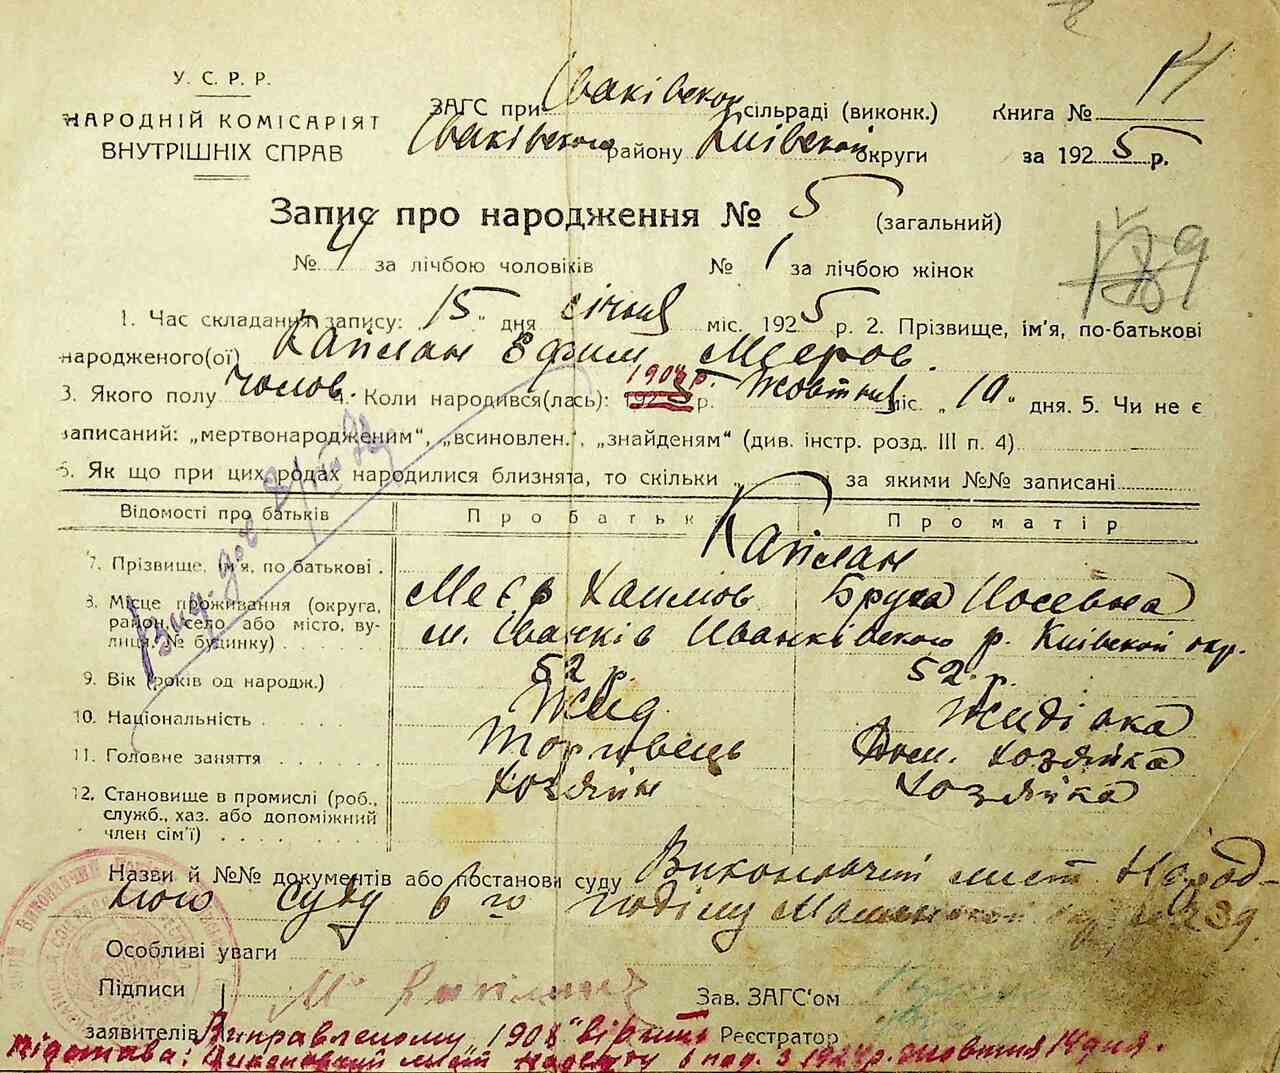 У. С. Р. Р.
НАРОДНІЙ КОМІСАРІЯТ
ВНУТРІШНІХ СПРАВ
ЗАГС при Іванківской сільраді (виконк.)
Іванківского району Київской округи
Книга № 14
за 1925 р.
Запис про народження № 5 (загальний)
№ 4 за лічбою чоловіків № 1 за лічбою жінок
1. Час складання запису: „15" дня січня міс. 1925 р. 2. Прізвище, ім'я, по-батькові
народженого(ої) Каплан Ефим Мееров.
3. Якого полу чолов. 4. Коли народився(лась): 1908 р. 192 р. Жовтня міс. „10" дня. 5. Чи не є
записаний: „мертвонародженим", „всиновлен.", „знайденям" (див. інстр. розд. III п. 4)
6. Як що при цих родах народилися близнята, то скільки „ за якими №№ записані
Відомості про батьків Про батька Про матір
Каплан
7. Прізвище, ім'я, по батькові . Меєр Хаимов Бруха Иосевна
8. Місце проживання (округа, район, село або місто, вулиця, № будинку) м. Іванків Иванківского р. Київской окр.
9. Вік (років од народж.) 52 р. 52 р.
10. Національність Жид Жидівка
11. Головне заняття Торговець Дом. хозяйка
12. Становище в промислі (роб., служб., хаз. або допоміжний член сім'ї) Хозяїн Хозяйка
Назви й №№ документів або постанови суду Виконавчий лист Народ-
ного Суду 6го
Особливі уваги
Підписи М. Каплан Зав. ЗАГС'ом
заявителів Виправленому „1908" вірить Реєстратор
Підстава: Виконавчий лист Нарсуду 6 1924 р. жовтня 14 дня.